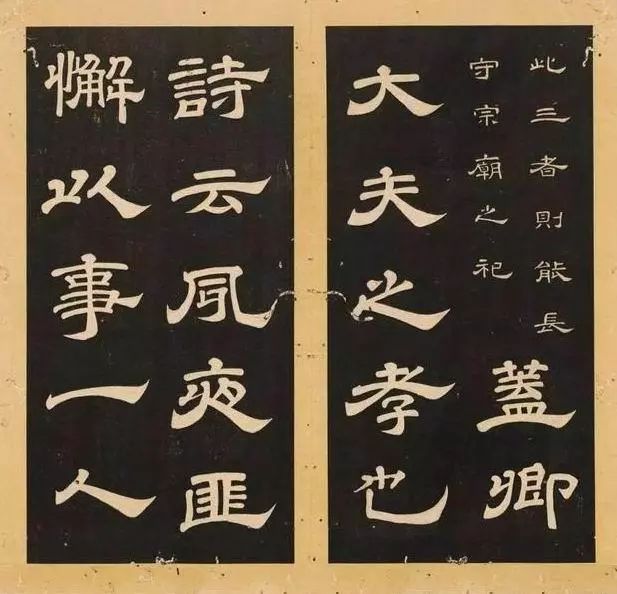 此三者則能長
守宗廟之祀
蓋卿
大夫之孝也
詩云夙夜匪
懈以事一人